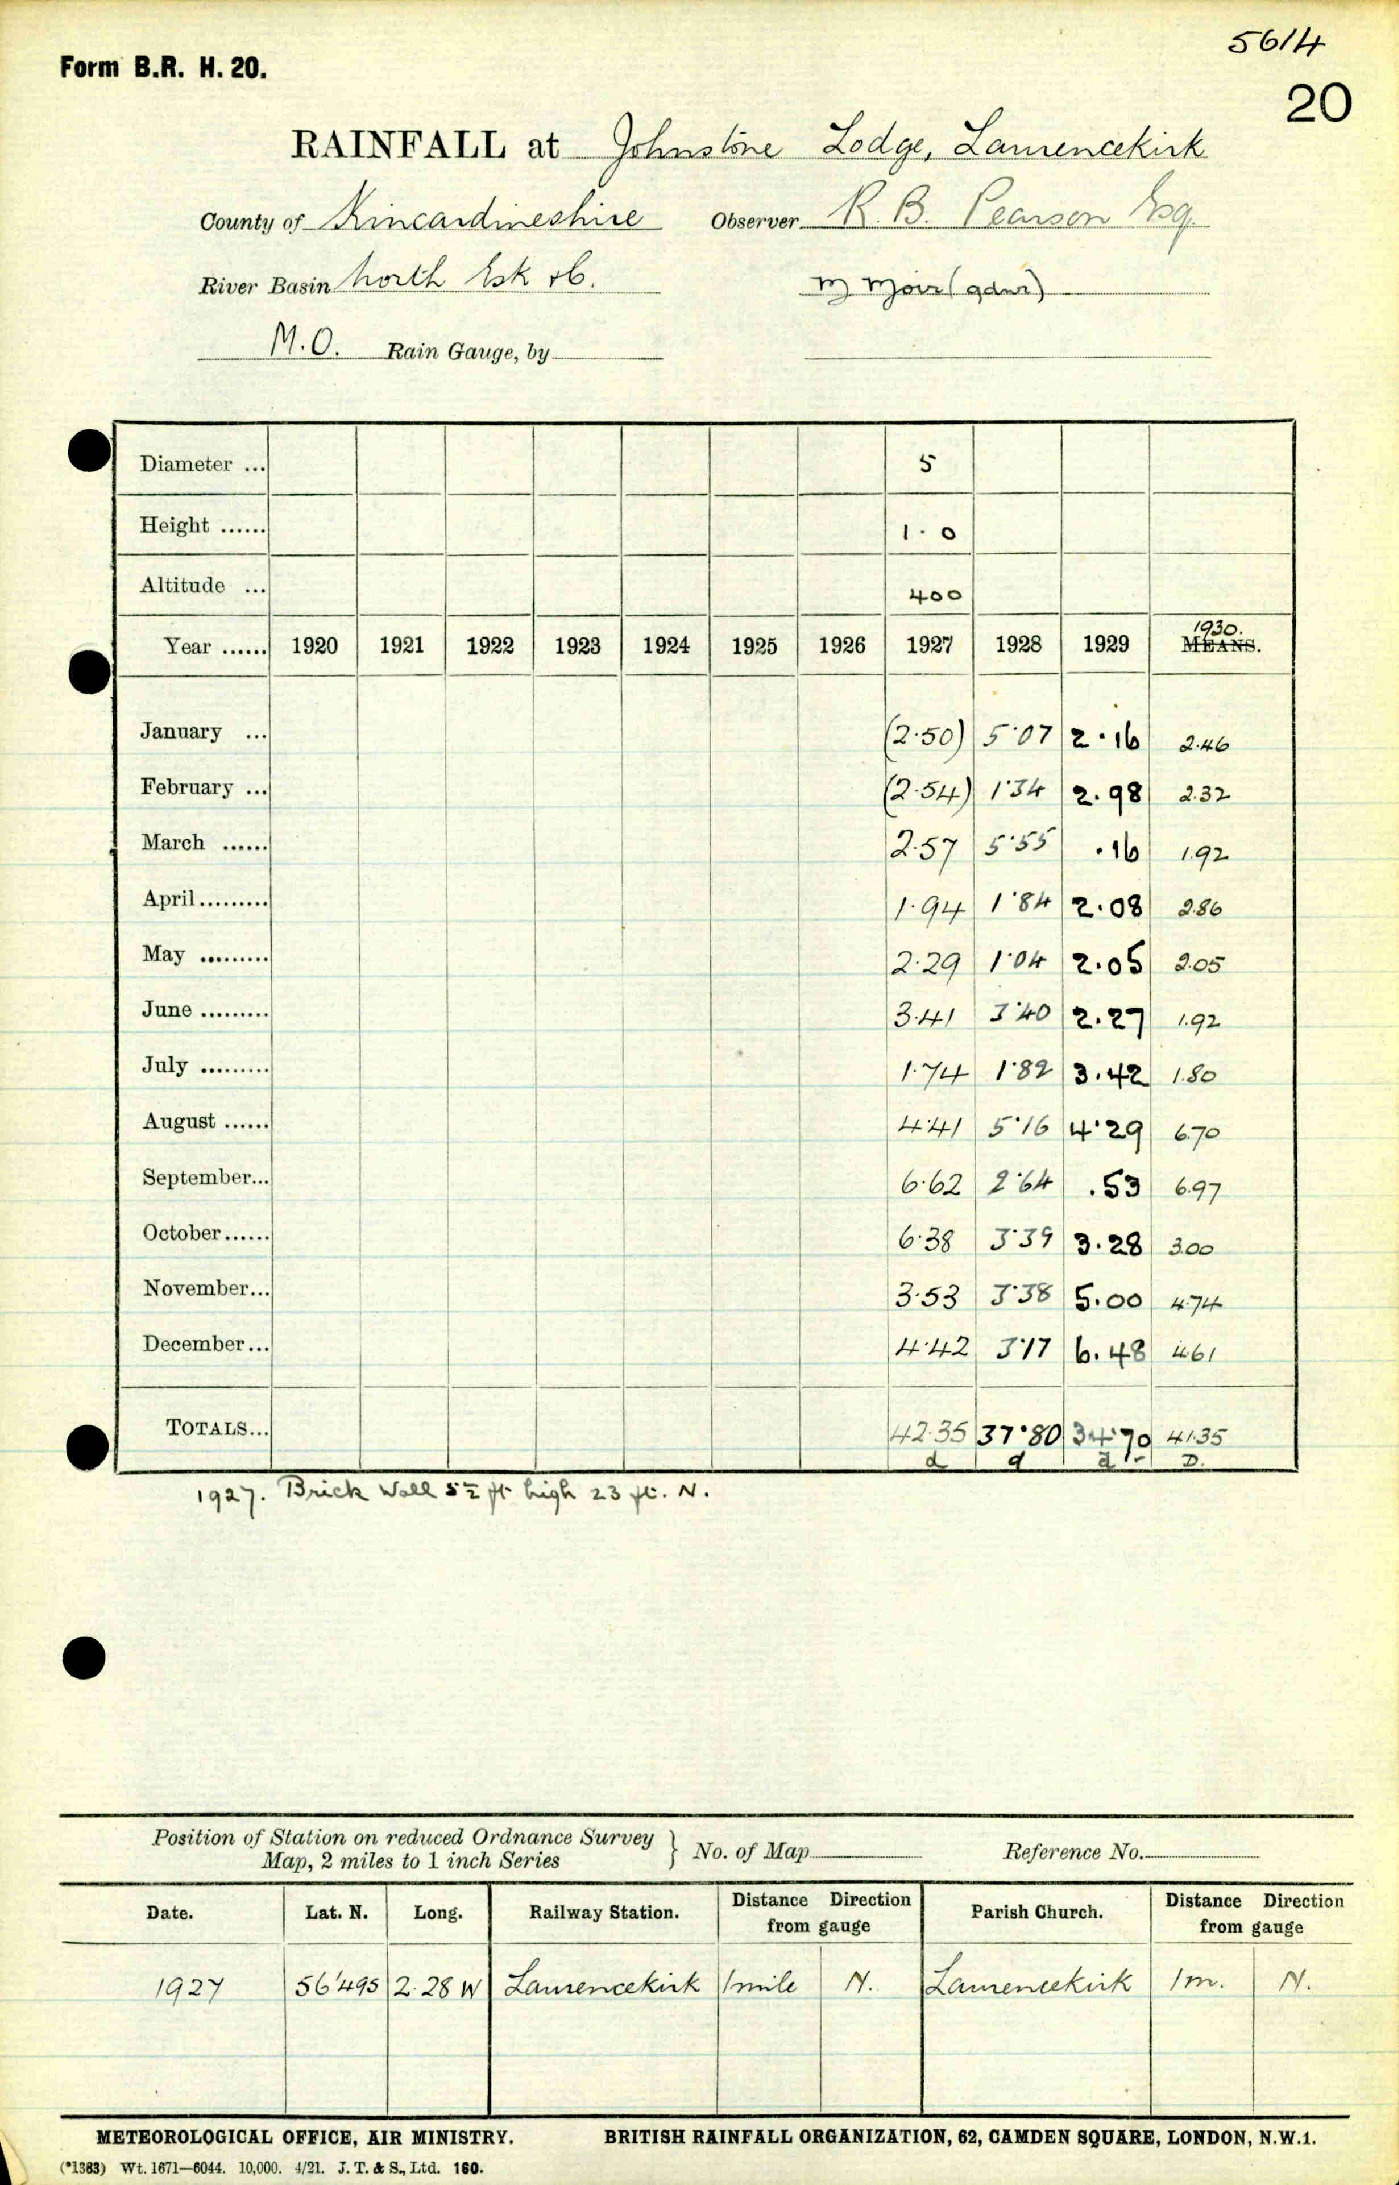 5614
Form B.R. H. 20.
20
RAINFALL at Johnstone Lodge, Laurencekirk
County of Kincardineshire Observer R. B. Pearson Esq.
River Basin North Esk &c. M Moir (gdnr)
M.O. Rain Gauge, by
Diameter ... 5
Height ...... 1.0
Altitude ... 400
1930.
Year ...... 1920 1921 1922 1923 1924 1925 1926 1927 1928 1929 MEANS.
January ... (2.50) 5.07 2.16 2.46
February ... (2.54) 1.34 2.98 2.32
March ...... 2.57 5.55 .16 1.92
April......... 1.94 1.84 2.08 2.86
May ......... 2.29 1.04 2.05 2.05
June ......... 3.41 3.40 2.27 1.92
July ......... 1.74 1.82 3.42 1.80
August ...... 4.41 5.16 4.29 6.70
September... 6.62 2.64 .53 6.97
October...... 6.38 3.39 3.28 3.00
November... 3.53 3.38 5.00 4.74
December... 4.42 3.17 6.48 4.61
TOTALS... 42.35 37.80 34.70 41.35
d d d D.
1927. Brick Wall 5½ ft high 23 ft. N.
Position of Station on reduced Ordnance Survey
Map, 2 miles to 1 inch Series } No. of Map Reference No.
Date. Lat. N. Long. Railway Station. Distance Direction from gauge Parish Church. Distance Direction from gauge
1927 56°495 2.28 W Laurencekirk 1 mile N. Laurencekirk 1 m. N.
METEOROLOGICAL OFFICE, AIR MINISTRY. BRITISH RAINFALL ORGANIZATION, 62, CAMDEN SQUARE, LONDON, N.W.1.
(*1383) Wt. 1671—6044. 10,000. 4/21. J. T. & S., Ltd. 160.